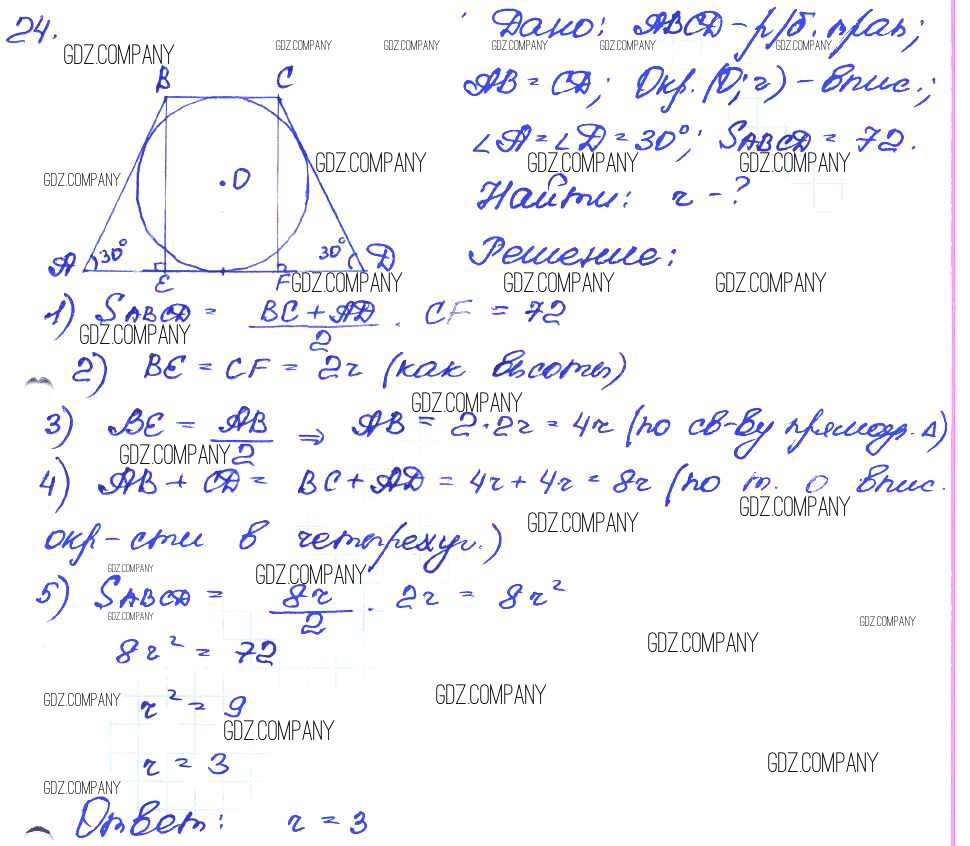 24.
Дано: ABCD – р/б. трап;
GDZ.COMPANY GDZ.COMPANY GDZ.COMPANY GDZ.COMPANY GDZ.COMPANY GDZ.COMPANY
B C
AB = CD; Окр. (O; r) – впис.;
∠A = ∠D = 30°; S ABCD = 72.
GDZ.COMPANY GDZ.COMPANY GDZ.COMPANY
GDZ.COMPANY
O
Найти: r – ?
Решение:
A 30° 30° D
E F
GDZ.COMPANY GDZ.COMPANY GDZ.COMPANY
1) S ABCD = (BC + AD)/2 · CF = 72
GDZ.COMPANY
2) BE = CF = 2r (как высоты)
GDZ.COMPANY
3) BE = AB/2 ⇒ AB = 2·2r = 4r (по св-ву прямоуг. Δ)
GDZ.COMPANY
4) AB + CD = BC + AD = 4r + 4r = 8r (по т. о впис.
GDZ.COMPANY
GDZ.COMPANY
окр-сти в четырехуг.)
GDZ.COMPANY
GDZ.COMPANY
5) S ABCD = 8r/2 · 2r = 8r²
GDZ.COMPANY
GDZ.COMPANY
8r² = 72
GDZ.COMPANY
GDZ.COMPANY
GDZ.COMPANY
r² = 9
GDZ.COMPANY
r = 3
GDZ.COMPANY
GDZ.COMPANY
Ответ: r = 3